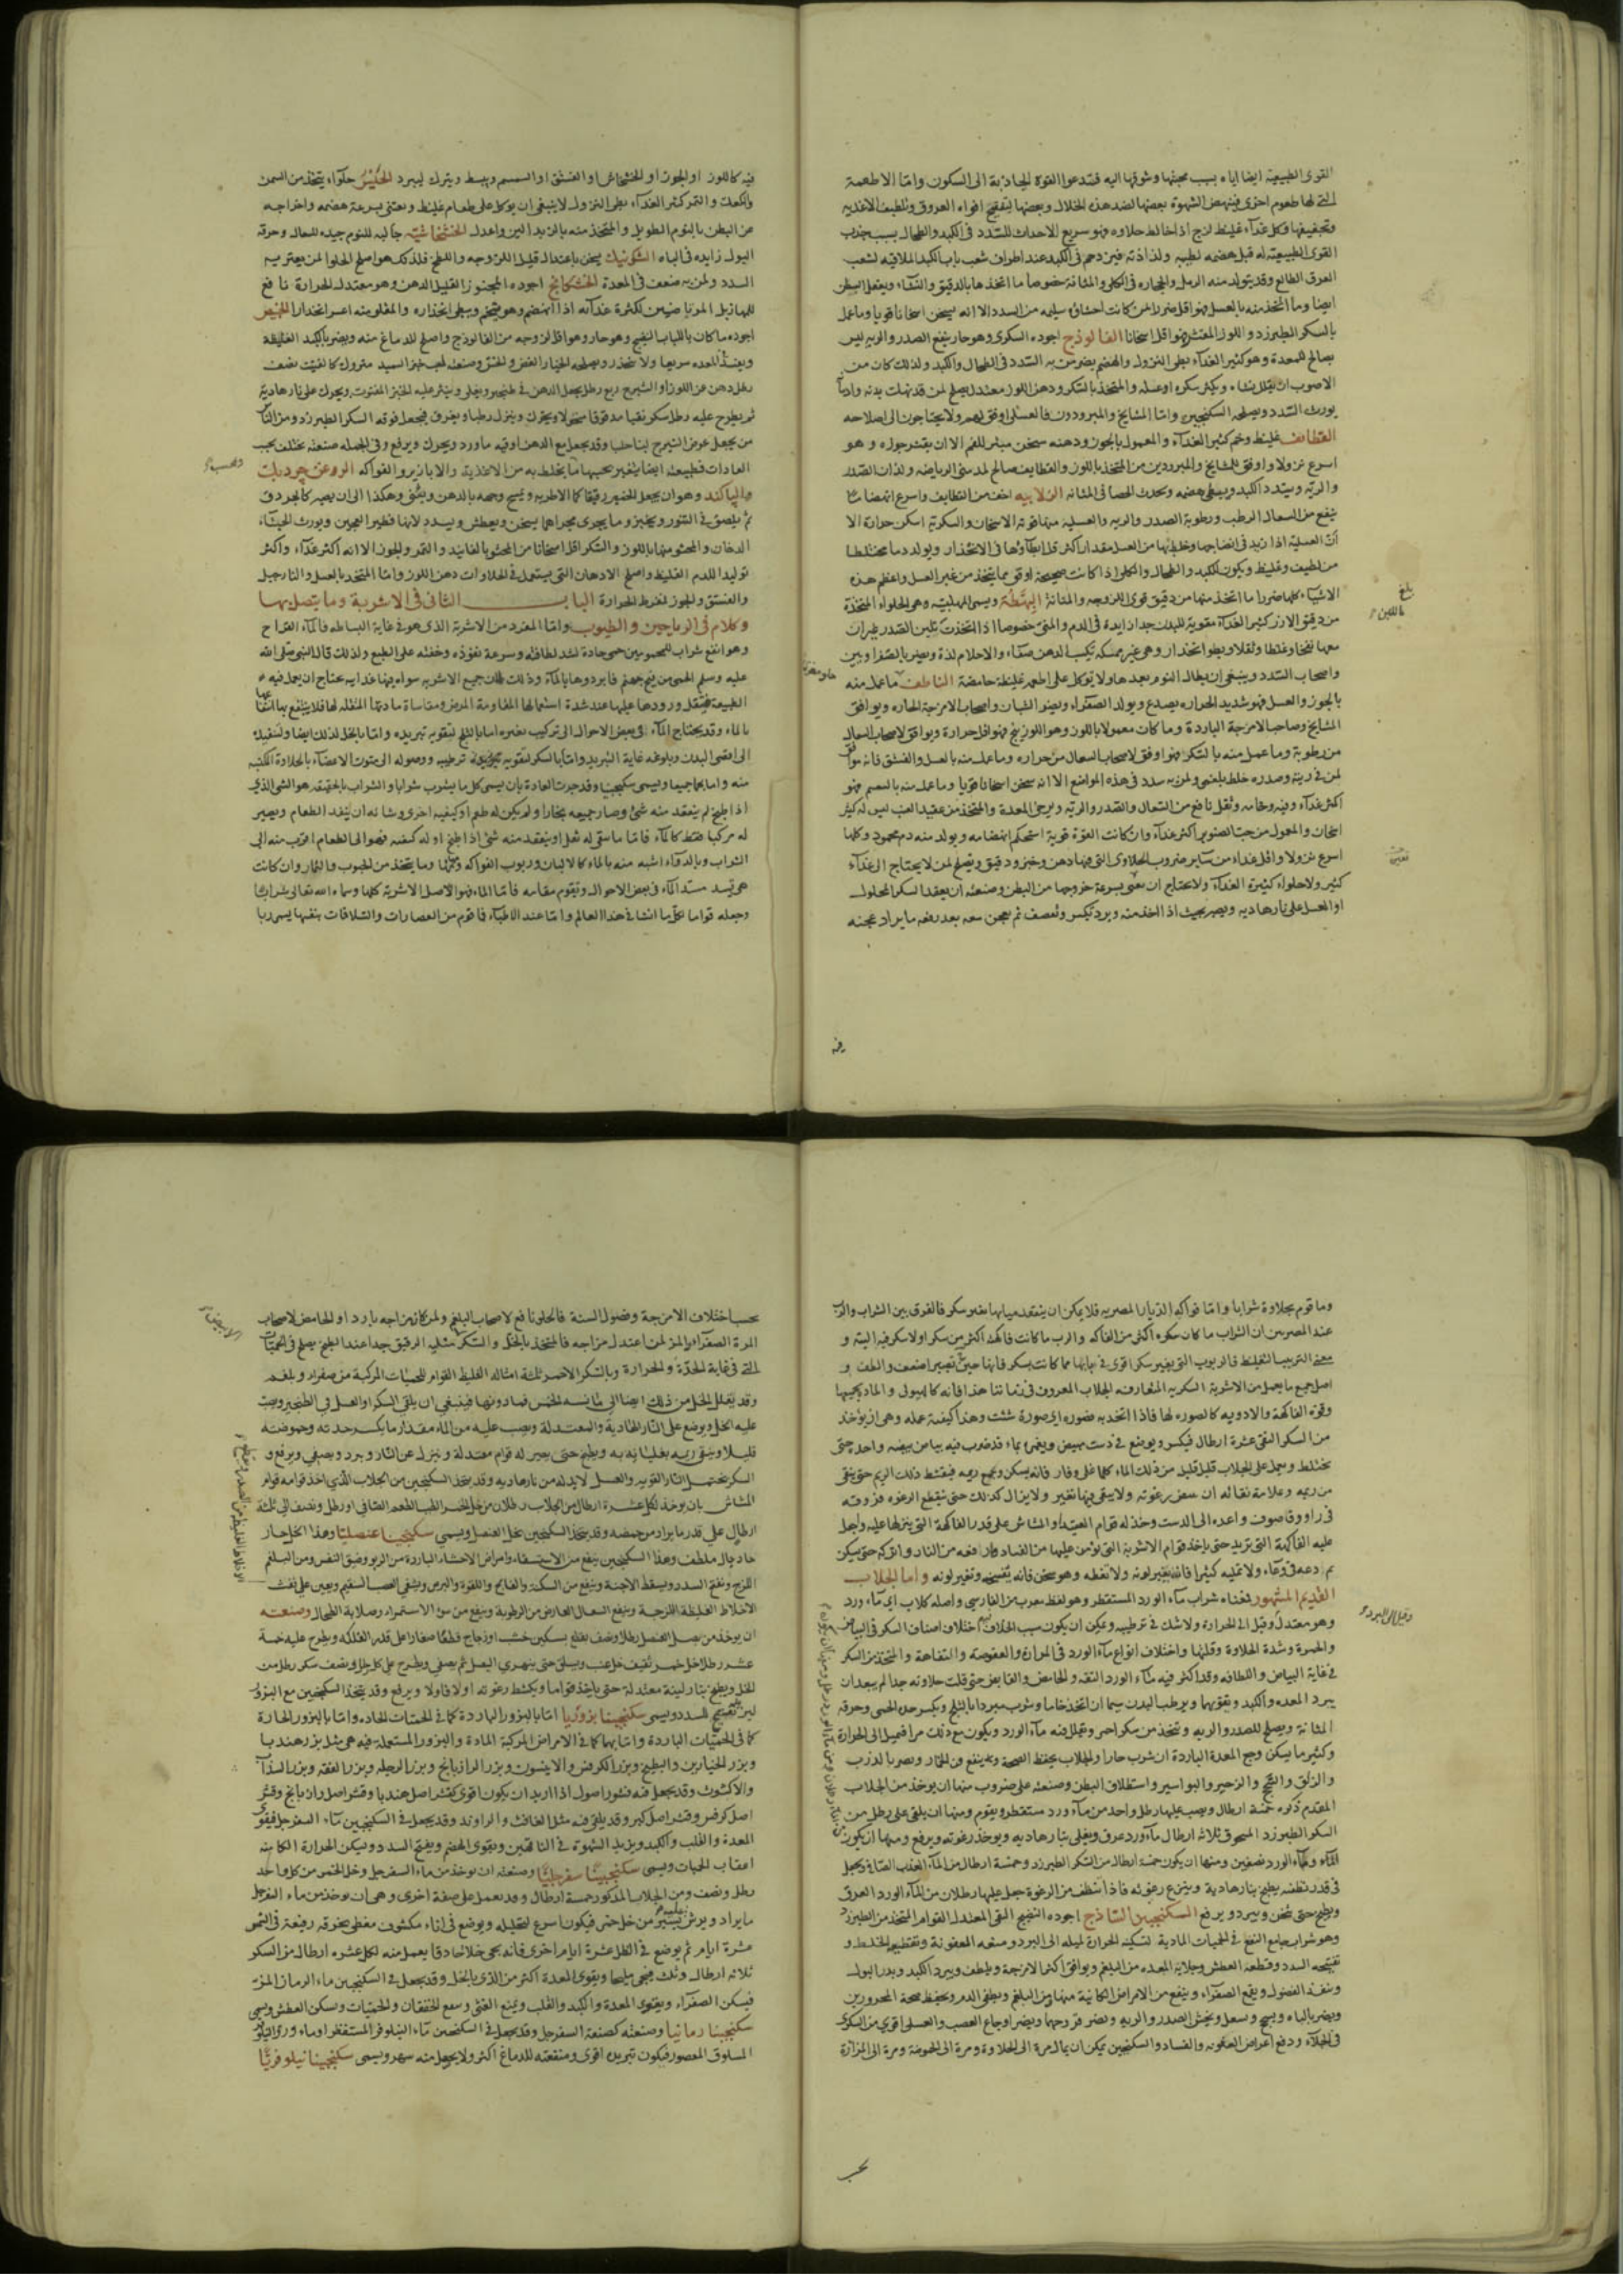 القوى الطبيعية ايضا اياه بسبب محبتها وشوقها اليه فتدعوا القوة الجاذبة الى السكون واما الاطعمة
التي لها طعوم اخرى فينهض الشهوة بعضها لضد هذه الخلال وبعضها لتفتيح افواه العروق وتلطيف الاغذية
وتجفيفها وكل غذاء غليظ لزج اذا خالط حلاوه فهو سريع الاحداث للسدد في الكبد والطحال بسبب جذب
القوى الطبيعية له قبل هضمه لطيبه ولذاذته فيزدحم في الكبد عند اطراف شعب باب الكبد الملاقيه لشعب
العرق الطالع وقد يتولد منه الرمل والحجاره في الكلى والمثانة خصوصا ما اتخذ هاب الدقيق والنشاء ويفعل
ايضا وما اتخذ منه بالعسل فهو اقل ضررا لمن كانت احشاؤه سليمه من السدد الا انه يسخن اسخانا قويا وما عمل
بالسكر الطبرزد واللوز المقشر فهو اقل اسخانا الفالوذج اجوده السكرى وهو حار ينفع الصدر والريه ليس
بصالح للمعدة وهو كثير الغذاء بطى النزول والهضم يضر من به السدد في الطحال والكبد ولذلك كان من
الاصوب ان يقلل نشاه ويكثر سكره او عسله والمتخذ بالسكر ودهن اللوز معتدل يصلح لمن قد نهكت بدنه وادمانه
يورث السدد ويصلحه السكنجبين واما المشايخ والمبرودون فالعسلى اوفق لهم ولا يحتاجون الى اصلاحه
القطائف غليظ وخم كثير الغذاء والمعمول بالجوز ودهنه مسخن مبثر للفم الا ان يقشر جوزه وهو
اسرع نزولا واوفق للمشايخ والمبرودين من المتخذ باللوز والقطايف صالح لمدمنى الرياضه ولذات الصدر
والريه ويسدد الكبد ويبطى هضمه ويحدث الحصا في المثانه الزلابيه اخف من القطايف واسرع انهضاما
ينفع من السعال الرطب ورطوبة الصدر والريه والعسليه منها قوية الاسخان والسكرية اسكن حرارة الا
ان العسلية اذا زيد في انضاجها وخلطها من العسل مقدار اكثر قل ابطاؤها في الانحدار ويولد دما مختلطا
من لطيف وغليظ ويكون للكبد والطحال والكلى اذا كانت صحيحة اوفق مما يتخذ من غير العسل واعظم هذه
الاشياء كلها ضررا ما اتخذ منها من دقيق قوى اللزوجه والمتانة البهطة ويسمى المهلبيه وهى الحلواء المتخذة
من دقيق الارز كثير الغذاء مقوية للبدن جدا زايدة في الدم والمنى خصوصا اذا اتخذت بلبن
معها نفخا وغلظا وثقلا وبطو انحدار وهى غير ممسكه تكسب الذهن صفاء والاحلام لذة ويضر بالصفراويين
واصحاب السدد وينبغي ان يطال النوم بعدها ولا توكل على اطعمه غليظة حامضة الناطف ما عمل منه
بالجوز والعسل فهو شديد الحراره يصدع ويولد الصفراء ويضر الشبان واصحاب الامزجة الحاره ويوافق
المشايخ وصاحب الامزجة الباردة وما كان معمولا باللوز وهو اللوزينج فهو اقل حرارة ويوافق لاصحاب السعال
من رطوبة وما عمل منه بالسكر فهو اوفق لاصحاب السعال من حراره وما عمل منه بالعسل والفستق فانه موافق
لمن في ريته وصدره خلط بلغمى ولمن به سدد في هذه المواضع الا انه يسخن اسخانا قويا وما عمل منه بالسمسم فهو
اكثر غذاء وفيه وخامه وثقل نافع من السعال والصدر والريه ويرخى المعدة والمتخذ من عقيد العنب ليس له كثير
اسخان والمعمول من حب الصنوبر اكثر غذاء وان كانت القوة قوية استحكم انهضامه ويولد منه دم محمود وكلها
اسرع نزولا واقل غذاء من ساير ضروب الحلاوى التى فيها دهن وخبز ودقيق ويصلح لمن لا يحتاج الى غذاء
كثير ولا حلواء كثيرة الغذاء ولا تحتاج ان تعنى بسرعة خروجها من البطن وصنعته ان يعقد السكر المحلول
او العسل على نار هاديه ويصير بحيث اذا اخذ منه وبرد تكسر وتقصف ثم يعجن معه بعد رفعه ما يراد عجنه
فيه
فيه كاللوز او الجوز او الخشخاش او الفستق او السمسم ويبسط ويترك ليبرد الحيس حلواء يتخذ من السمن
والكعك والتمر كثير الغذاء بطى النزول لا ينبغى ان يوكل على طعام غليظ ويعتنى بسرعة هضمه واخراجه
من البطن بالنوم الطويل والمتخذ منه بالزبد الين واعدل الخشخاشيه جالبه للنوم جيده للسعال وحرقة
البول زايده في الباه الشكونيك يسخن باعتدال قليل اللزوجه واللطخ فلذلك هو اصلح الحلوا لمن يعتريه
السدد ولمن به ضعف في المعدة الخشكنانج اجوده المخبوز القليل الدهن وهو معتدل الحرارة نافع
اجوده ما كان باللباب النقيع وهو حار وهو اقل لزوجه من الفالوذج واصلح للدماغ منه ويضر بالكبد الغليظة
رطل دهن من اللوز او الشيرج ربع رطل يجعل الدهن في طنجير ويغلى وينثر عليه الخبز المفتوت ويحرك على نار هادية
ثم يطرح عليه رطل سكر نقيا مدقوقا منخولا ويحرك وينزل رطبا ويغرف فيجعل فوقه السكر الطبرزد ومن الناس
من يجعل عوض الشيرج لبنا حلبا وقد يجعل مع الدهن اوقيه ماورد ويحرك ويرفع وفى الجمله صنعته تختلف بحسب
العادات فطبيعته ايضا يتغير بحسبها ما يخلط به من الاغذية والابازير والفواكه
وهو ان يجعل الخمير رقيقا كالاطريه ويمسح وجهه بالدهن ويثنى وهكذا الى ان يصير كالجردق
ثم يلصق في التنور ويخبز وما يجرى مجراهما يسخن ويعطش ويسدد لانها فطير العجين ويورث الجشاء
الدخان والمحشو منها باللوز والسكر اقل اسخانا من المحشو بالفانيد والتمر والجوز الا انه اكثر غذاء واكثر
توليدا للدم الغليظ واصلح الادهان التى يستعمل في الحلاوات دهن اللوز واما المتخذ بالعسل والنارجيل
والفستق والجوز لمفرط الحرارة الباب الثانى في الاشربة وما يتصل بها
وكلام في الرياحين والطيوب واما المفرد من الاشربة الذى هو في غاية البساطه فالماء القراح
وهو انفع شراب للمحمومين حمى حادة لشد لطافته وسرعة نفوذه وخفته على الطبع ولذلك قال النبى صلى الله
عليه وسلم الحمى من فيح جهنم فابردوها بالماء وذلك فان جميع الاشربه سواه فيها غذاييه يحتاج ان يعمل فيه
بالماء وقد يحتاج الماء في بعض الاحوال الى تركيب بغيره اما بالثلج لتقويه تبريده واما بالخل لذلك ايضا ولتنفيذه
الى اقصى البدن وبلوغه غاية التبريد واما بالسكر لتقوية ترطيبه ووصوله الى متون الاعضاء بالحلاوة المكتسبه
منه واما بهما جميعا ويسمى سكنجبينا وقد جرت العادة بان يسمى كل ما يشرب شرابا والشراب بالحقيقه هو الشى الذى
اذا طبخ لم ينعقد منه شئ وصار جميعه بخارا ولم يكن له طعم او كيفيه اخرى وشانه ان ينفذ الطعام ويصير
له مركبا فقط كالماء فاما ما بقى له ثفل او ينعقد منه شئ اذا طبخ او له كيفيه فهو الى الطعام اقرب منه الى
الشراب وبالدواء اشبه منه بالماء كالالبان وربوب الفواكه وما يتخذ من الحبوب والثمار وان كانت
هى تسد مسد الماء في بعض الاحوال وتقوم مقامه فاما الماء فهو الاصل الاشربة كلها وسماه الله تعالى شرابا
وجعله قواما لكل ما انشا في هذا العالم واما عند الاطباء فما قوم من العصارات والسلاقات بنفسها يسمى ربا
وما قوم بحلاوة شرابا واما فواكه الديار المصريه فلا يمكن ان ينعقد مياهها بغير سكر فالفرق بين الشراب والرب
عند المصريين ان الشراب ما كان سكره اكثر من الفاكه والرب ما كانت فاكهته اكثر من سكره او لا سكر فيه البته و
اصل جميع ما يعمل من الاشربة السكريه المتعارفه الجلاب المعروف في زماننا هذا فانه كالهيولى والماده يجيبها
وقوة الفاكهة والادويه كالصوره لها فاذا اتخذ به فصوره اى صورة شئت وهذا كيفية عمله وهى ان يؤخذ
من السكر النقى عشرة ارطال فيكسر ويوضع في دست مبيض ويغمر بماء قد ضرب فيه بياض بيضه واحده حتى
يختلط ويحمل على الجلاب قليل قليل من ذلك الماء كلما غلى وفار فانه يسكن ويجمع ريمه فيقشط ذلك الريم حتى ينقى
من ريمه وعلامة نقائه ان يبيض رغوته ولا يبقى فيها تغير ولا يزال كذلك حتى ينقطع الرغوه فروقه
في راووق صوف واعده الى الدست وخذ له قوام العقيد او المشاش على قدر الفاكهة التى ينزلها عليه واجعل
عليه الفاكهة التى تريد حتى ياخذ قوام الاشربة التى يؤمن عليها من الفساد وارفعه من النار واتركه حتى يسكن
ثم دعه في وعاء ولا تغليه كثيرا فانه يتغير لونه ولا تغطه وهو سخن فانه يفسده وتغير لونه واما الجلاب
القديم المشهور فغناه شراب ماء الورد المستقطر وهو لفظ معرب من الفارسى واصله كلاب اى ماء ورد
وهو معتدل وقيل الى الحرارة ولا شك في ترطيبه ويمكن ان يكون سبب الخلاف اختلاف اصناف السكر في البياض
والحمرة وشدة الحلاوة وقلتها واختلاف انواع ماء الورد في المرارة والعفوصة والتفاهة والمتخذ من السكر
في غاية البياض واللطافه وقد اكثر فيه ماء الورد التفه والحامض والقابض حتى قلت حلاوته جدا لم يبعد ان
يبرد المعده والكبد ويقويها ويرطب البدن سيما ان اتخذ خاما وشرب مبردا بالثلج ويكسر حده الحمى وحرقه
المثانة ويصلح للصدر والريه ويتخذ من سكر احمر وقلل فيه ماء الورد ويكون مع ذلك مرا فميل الى الحرارة
وكثير ما يسكن وجع المعدة الباردة ان شرب حارا والجلاب يحفظ الصحة وينفع من الخمار ويضر بالذرب
والزلق والسحج والزحير والبواسير واستطلاق البطن وصنعته على ضروب منها ان يوخذ من الجلاب
المقدم ذكره خمسة ارطال ويصب عليها رطل واحد من ماء ورد مستقطر ويقوم ومنها ان يلقى على رطل من
السكر الطبرزد المسحوق ثلاثه ارطال ماء ورد عرق ويغلى بنار هاديه ويوخذ رغوته ويرفع ومنها ان يكون
الماء وماء الورد نصفين ومنها ان يكون خمسة ارطال من السكر الطبرزد وخمسة ارطال من الماء العذب الصافى ويجعل
في قدر نظفه يطبخ بنار هادية وينزع رغوته فاذا نظف من الرغوة جعل عليها رطلان من الماء الورد العرق
ويطبخ حتى يثخن ويبرد ويرفع السكنجبين الساذج اجوده النضيج النقى المعتدل القوام المتخذ من الطبرزد
وهو شراب جامع النفع في الحميات المادية لتسكينه الحرارة لميله الى البرد ومنعه العفونة وتقطيعه الخلط و
تفتيحه السدد وقطعه العطش وجلايه المعده من البلغم ويوافق اكثر الامزجة ويلطف ويبرد الكبد ويدر البول
وينفذ الفضول ويقمع الصفراء وينفع من الامراض الكاينة منها ومن البلغم ويطفى الدم ويحفظ صحة المحرورين
ويضر بالباه ويسحج ويسعل ويخشن الصدر والريه ويضر قروحها ويضر اوجاع العصب والعسلى اقوى من السكرى
في الجلاء ودفع اعراض العفونه والفساد والسكنجبين يمكن ان يمال مرة الى الحلاوة ومرة الى الحموضة ومرة الى المزازة
بحسب
بحسب اختلاف الامزجة وفصول السنة فالحلو نافع لاصحاب البلغم ولمن كان مزاجه بارد او الحامض لاصحاب
المرة الصفراء والمز لمن اعتدل مزاجه فالمتخذ بالخل والسكر مثليه الرقيق جدا عند الطبخ يصلح في الحميات
التى في غاية الحدة والحرارة وبالسكر الاحمر ثلثة امثاله الغليظ القوام للحميات المركبة من صفراء وبلغم
وقد يقلل الخل من ذلك ايضا الى ما نسبه الخمس فما دونها فينبغى ان يلقى السكر او العسل في الطنجير ويصب
عليه الخل ويوضع على النار الهادية والمعتدلة ويصب عليه من الماء مقدار ما يكسر حدته وحموضته
قليلا وينقى ريمه بغليانه به ويطبخ حتى يصير له قوام معتدلة وينزل عن النار ويبرد ويصفى ويرفع و
السكر يحتمل النار القويه والعسل لا بد له من نار هاديه وقد يتخذ السكنجبين من الجلاب الذى اخذ قوامه قوام
المشاش بان يوخذ لكل عشرة ارطال من الجلاب رطلان من خل الخمر الطيب الطعم الصافى او رطل ونصف الى ثلثة
ارطال على قدر ما يراد من حمضه وقد يتخذ السكنجبين بخل العنصل ويسمى سكنجبينا عنصليا وهذا الخل حار
حاد جال ملطف وهذا السكنجبين ينفع من الاستسقاء وامراض الاحشاء الباردة من الربو وضيق النفس ومن البلغم
اللزج ويفتح السدد ويسقط الاجنة وينفع من السكتة والفالج واللقوة والبرص ويشفى العصب السقيم ويعين على نفث
الاخلاط الغليظة اللزجة وينفع السعال العارض من الرطوبة وينفع من سوء الاستمراء وصلابة الطحال وصنعته
ان يوخذ من بصل العنصل رطل ونصف يقطع بسكين خشب او زجاج قطعا صغارا على قدر الفلكه ويطرح عليه خمسة
عشر رطلا خل خمر ثقيف خل عنب ويسلق حتى ينهرى البصل ثم يصفى ويطرح على كل رطل ونصف سكر رطل من
الخل ويطبخ بنار لينة معتدلة حتى ياخذ قواما ويكشط رغوته اولا فاولا ويرفع وقد يتخذ السكنجبين مع البزور
ليزيد تفتيح للسدد ويسمى سكنجبينا بزوريا اما بالبزور الباردة كما في الحميات الحاده واما بالبزور الحارة
كما في الحميات الباردة واما بهما كما في الامراض المركبة المادة والبزور المستعمله فيه هى مثل بزر هندبا
وبزر الخيارين والبطيخ وبزر الكرفس والانيسون وبزر الرازيانج وبزر الرجله وبزر القثه وبزر السذاب
والاكشوث وقد يجعل فيه قشور اصول اذا اريد ان يكون اقوى كقشر اصل هندبا وقشر اصل رازيانج وقشر
اصل كرفس وقشر اصل كبر وقد يلقى فيه مثل الغافث والراوند وقد يجعل في السكنجبين ماء السفرجل فيقوى
المعدة والقلب والكبد ويزيد الشهوة في الناقهين ويقوى الهضم ويفتح السدد ويسكن الحرارة الكاينه
اعقاب الحميات ويسمى سكنجبينا سفرجليا وصنعته ان يوخذ من ماء السفرجل وخل الخمر من كل واحد
رطل ونصف ومن الجلاب المذكور خمسة ارطال وقد يعمل على صفة اخرى وهى ان يوخذ من ماء السفرجل
ما يراد ويرش عليه يسير من خل حتى فيكون اسرع لتحليله ويوضع في اناء مكشوف مغطى بخرقه رفيعة في الشمس
عشرة ايام ثم يوضع في الظل عشرة ايام اخرى فانه يجى خلا حاذقا يعمل منه لكل عشره ارطال من السكر
ثلاثه ارطال وثلث فيجى مليحا ويقوى المعدة اكثر من الذى بالخل وقد يجعل في السكنجبين ماء الرمان المز
فيسكن الصفراء ويقوى المعدة والكبد والقلب ويمنع الغثى وينفع الخفقان والحميات وتسكن العطش ويسمى
سكنجبينا رمانيا وصنعته كصنعة السفرجل وقد يجعل في السكنجبين ماء النيلوفر المستقطر او ماء ورق النيلوفر
المسلوق المعصور فيكون تبريده اقوى ومنفعته للدماغ اكثر ولا يحصل منه سهر ويسمى سكنجبينا نيلوفريا